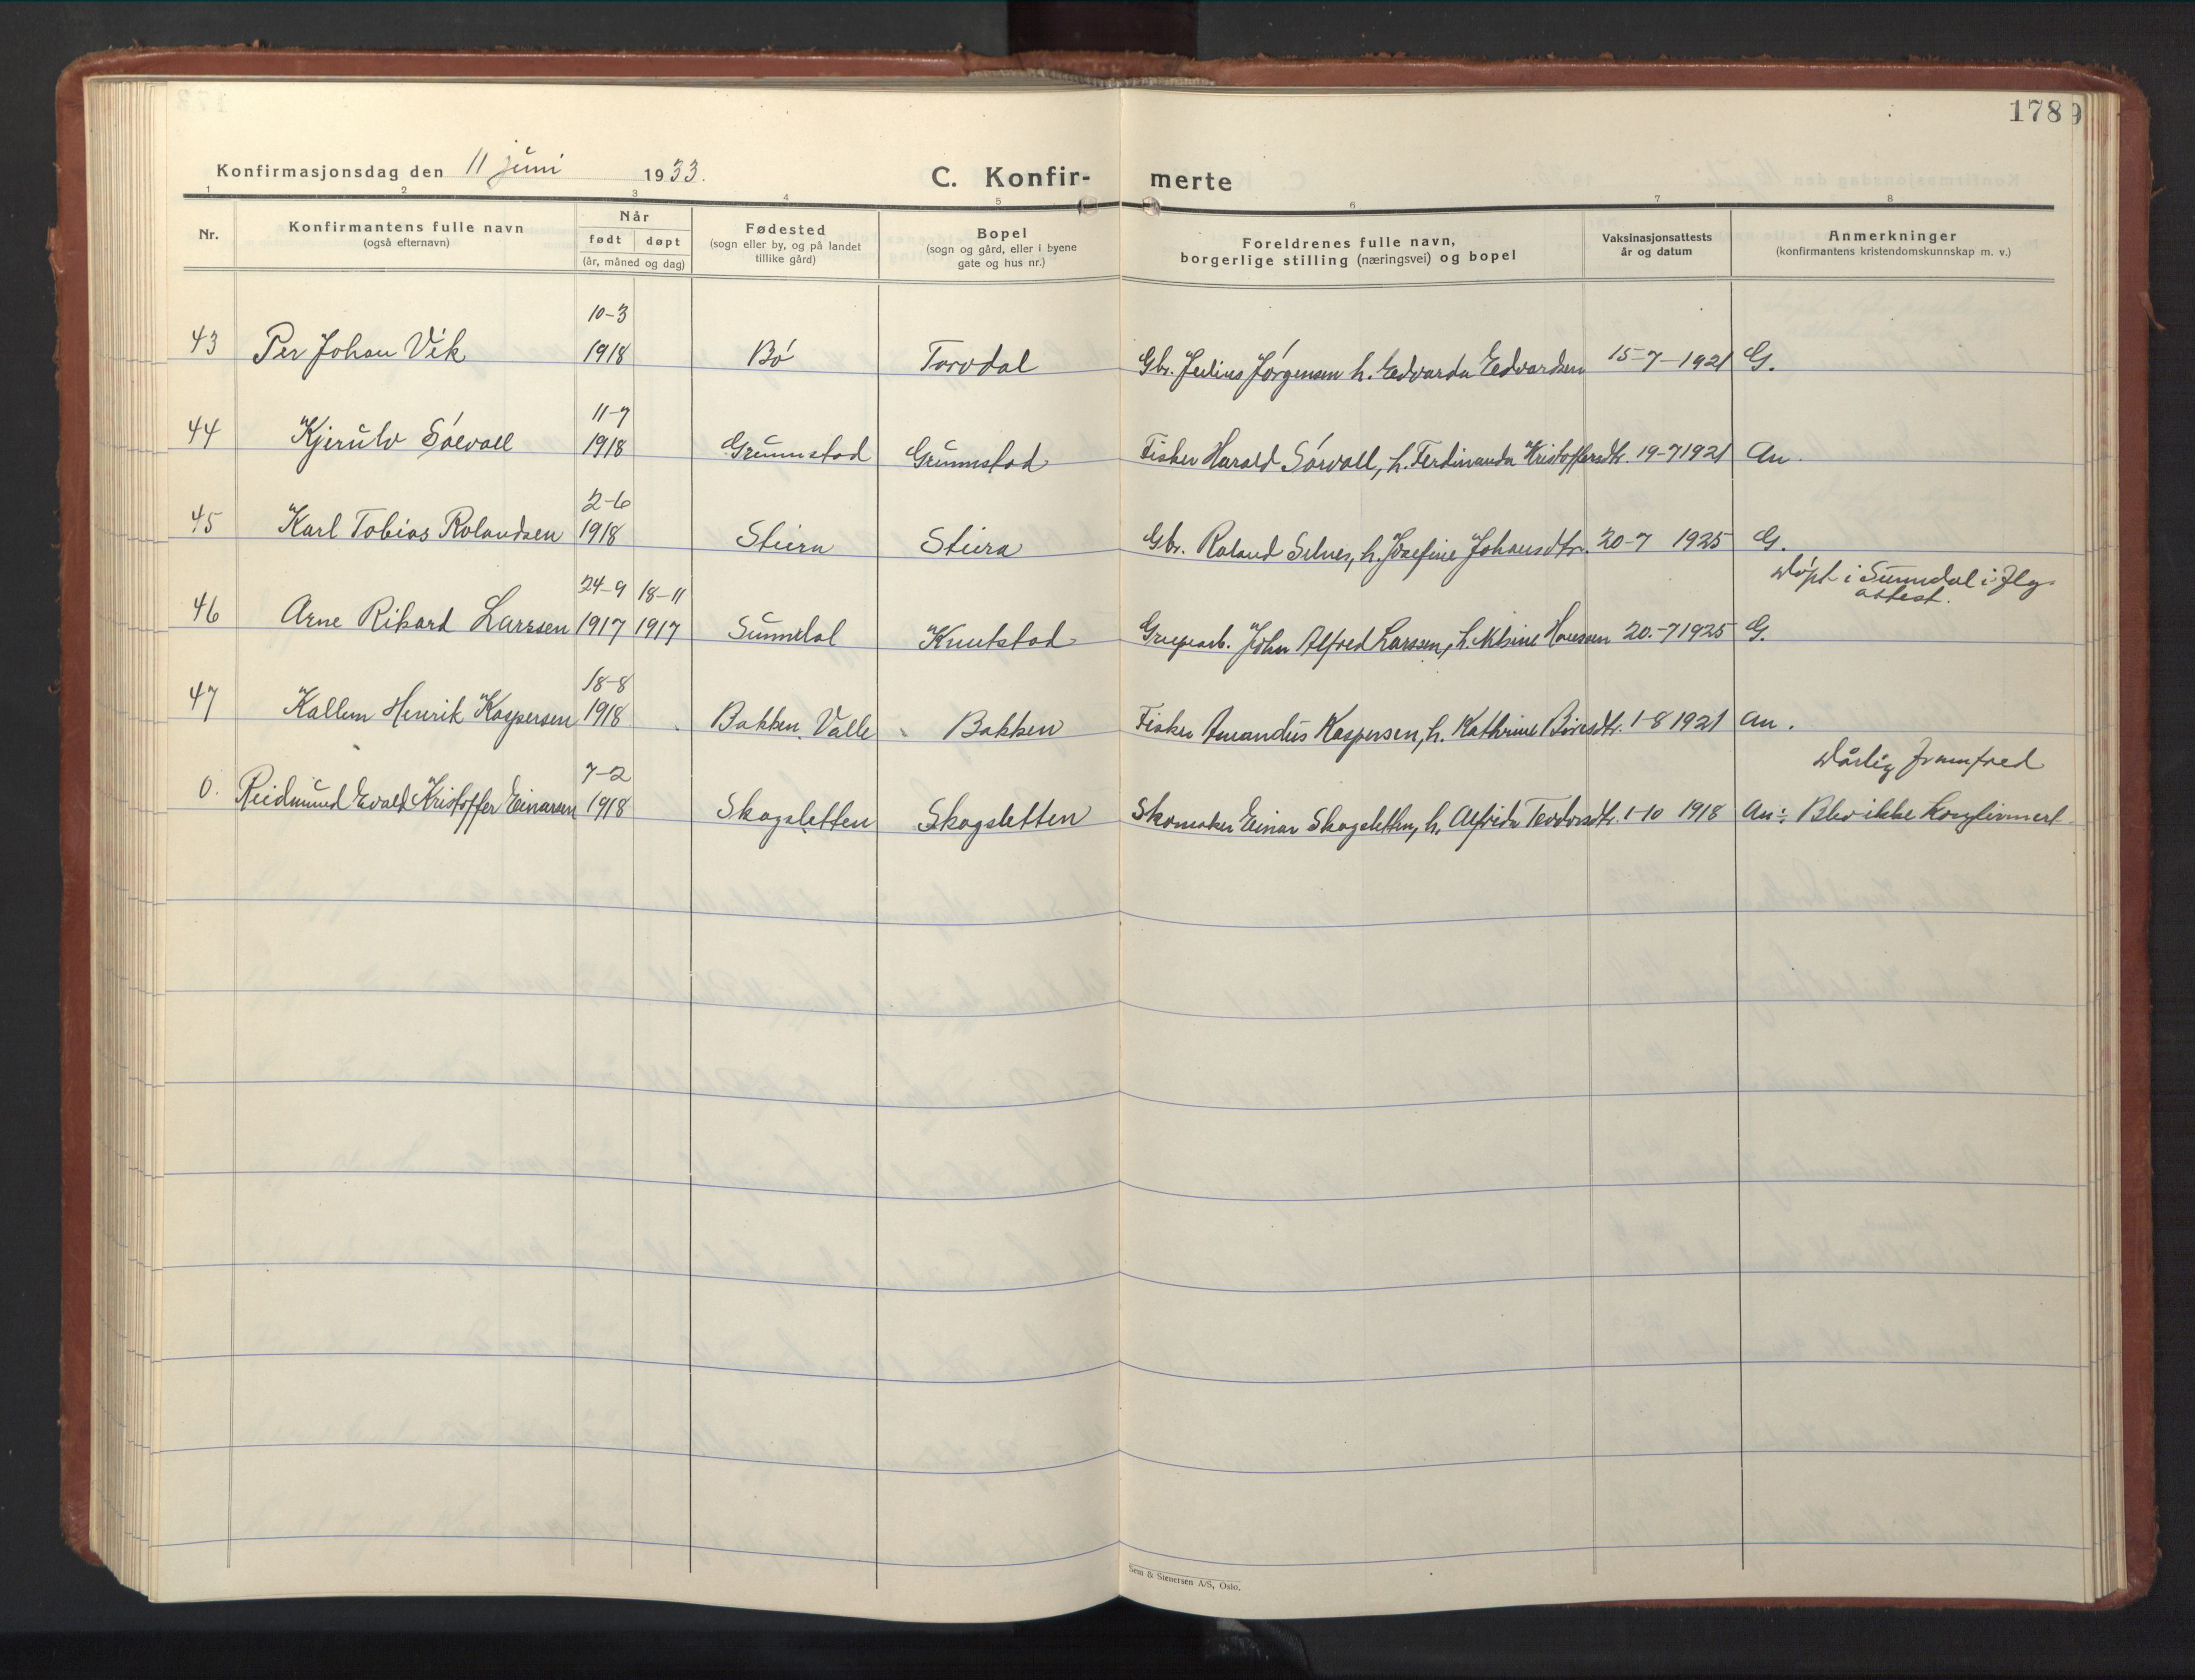 178
Konfirmasjonsdag den 11 juni 1933. C. Konfir- merte
1 2 3 4 5 6 7 8
Nr. Konfirmantens fulle navn (også efternavn) Når født døpt (år, måned og dag) Fødested (sogn eller by, og på landet tillike gård) Bopel (sogn og gård, eller i byene gate og hus nr.) Foreldrenes fulle navn, borgerlige stilling (næringsvei) og bopel Vaksinasjonsattests år og datum Anmerkninger (konfirmantens kristendomskunnskap m. v.)
10-3
43 Per Johan Vik 1918 Bø Torvdal Gbr. Julius Jørgensen h. Edvarda Edvardsen 15-7-1921 G.
11-7
44 Kjerulv Sølvoll 1918 Grunnstad Grunnstad Fisker Harald Sørvoll, h. Ferdinanda Kristoffersdtr. 19-7 1921 An.
2-6
45 Karl Tobias Rolandsen 1918 Steira Steira Gbr. Roland Selnes, h. Josefine Johansdtr. 20-7 1925 G.
24-9 18-11 Døpt i Sunndal i flg. attest.
46 Arne Rikard Larssen 1917 1917 Sunndal Knutstad Grubearb. John Alfred Larssen, h. Hansen 20.-7 1925 G.
18-8
47 Kallem Henrik Kaspersen 1918 Bakken, Valle Bakken Fisker Amandus Kaspersen, h. Kathrine 1-8 1921 An.
7-2 Dårlig framferd
0. Reidmund Evald Kristoffer Einarsen 1918 Skogsletten Skogsletten Skomaker Einar Skogsletten, h. Alfrida Teodorsdtr. 1-10 1918 An÷ Blev ikke konfirmert.
Sem & Stenersen A/S, Oslo.